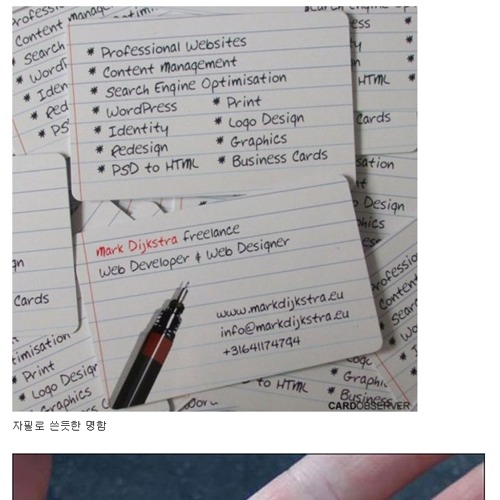 Professional Websites
Content Management
Search Engine Optimisation
WordPress
Print
Identity
Logo Design
Redesign
Graphics
PSD to HTML
Business Cards
Mark Dijkstra freelance
Web Developer & Web Designer
www.markdijkstra.eu
info@markdijkstra.eu
+31641174794
Cards
timisation
Print
Logo Design
Graphics
to HTML
HTML
Cards
Design
CARDOBSERVER
자필로 쓴듯한 명함